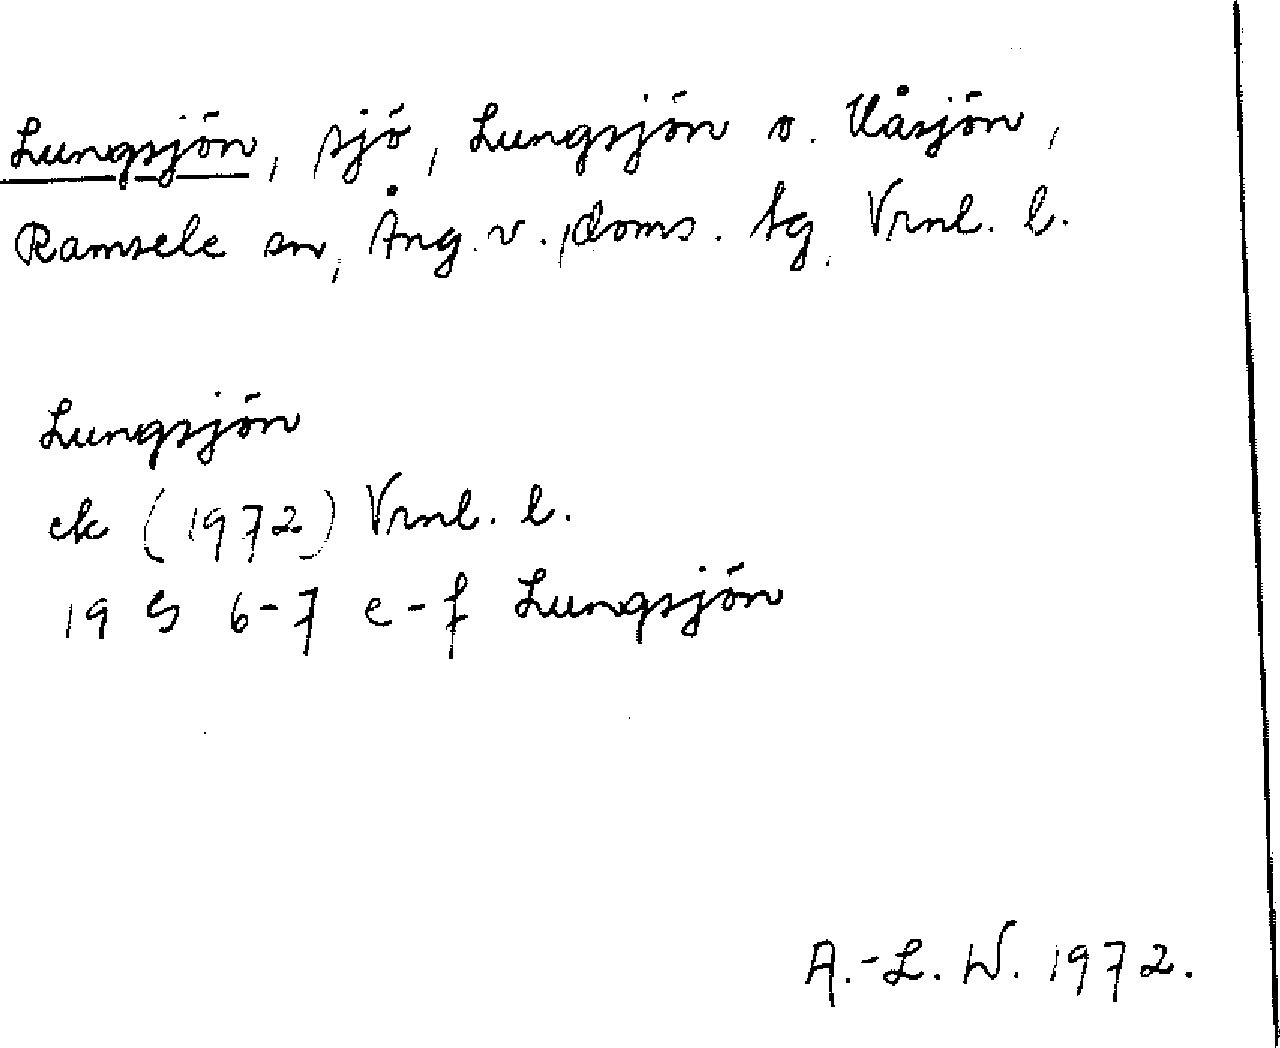 Lungsjön, sjö, Lungsjön o. Uåsjön,
Ramsele sn, Ång. v., doms. tg. Vrnl. l.
Lungsjön
ek (1972) Vrnl. l.
19 G 6-7 e-f Lungsjön
A.-L. W. 1972.